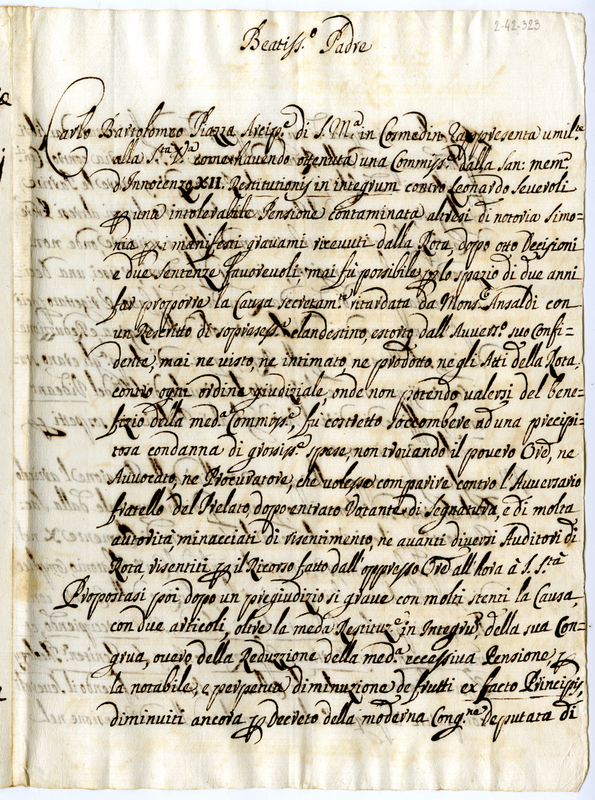 2-42-323
Beatiss.o Padre
Carlo Bartolomeo Piazza Arcip.e di S. M.a in Cosmedin rappresenta umil.te
alla S.tà V.a come havendo ottenuta una Commiss.ne dalla san: mem.
d'Innocenzo XII. Restitutionis in integrum contro Leonardo Severoli
ꝑ una intolerabile Pensione contaminata altresi di notoria simo=
nia ꝑ i manifesti gravami ricevuti dalla Rota, dopo otto Decisioni
e due sentenze favorevoli; mai fù possibile ꝑ lo spazio di due anni
far proporre la Causa secretam.te ritardata da Mons.e Ansaldi con
un Rescritto di sopresess.e clandestino, estorto dall'Avvers.o suo Confi=
dente, mai ne visto, ne intimato, ne prodotto, ne gli Atti della Rota,
contro ogni ordine giudiziale, onde non potendo valersi del bene=
fizio della med.a Commiss.e fù costretto soccombere ad una precipi=
tosa condanna di grossiss.e spese, non trovando il povero Ore, ne
Avvocato, ne Procuratore, che volesse comparire contro l'Avversario
fratello del Prelato, dopo entrato Votante di Segnatura, e di molta
autorità, minacciati di risentimento, ne avanti diversi Auditori di
Rota, risentiti ꝑ il Ricorso fatto dall'oppresso Ore all'hora à S. S.tà
Propostasi poi dopo un pregiudizio si grave con molti stenti la Causa,
con due articoli, oltre la meda Restituz.e in Integru, della sua Con=
grua, overo della Reduzzione della med.a eccessiva Pensione ꝑ
la notabile, e perpetua diminuzione de frutti ex facto Principis,
diminuiti ancora ꝑ Decreto della moderna Cong.ne Deputata di